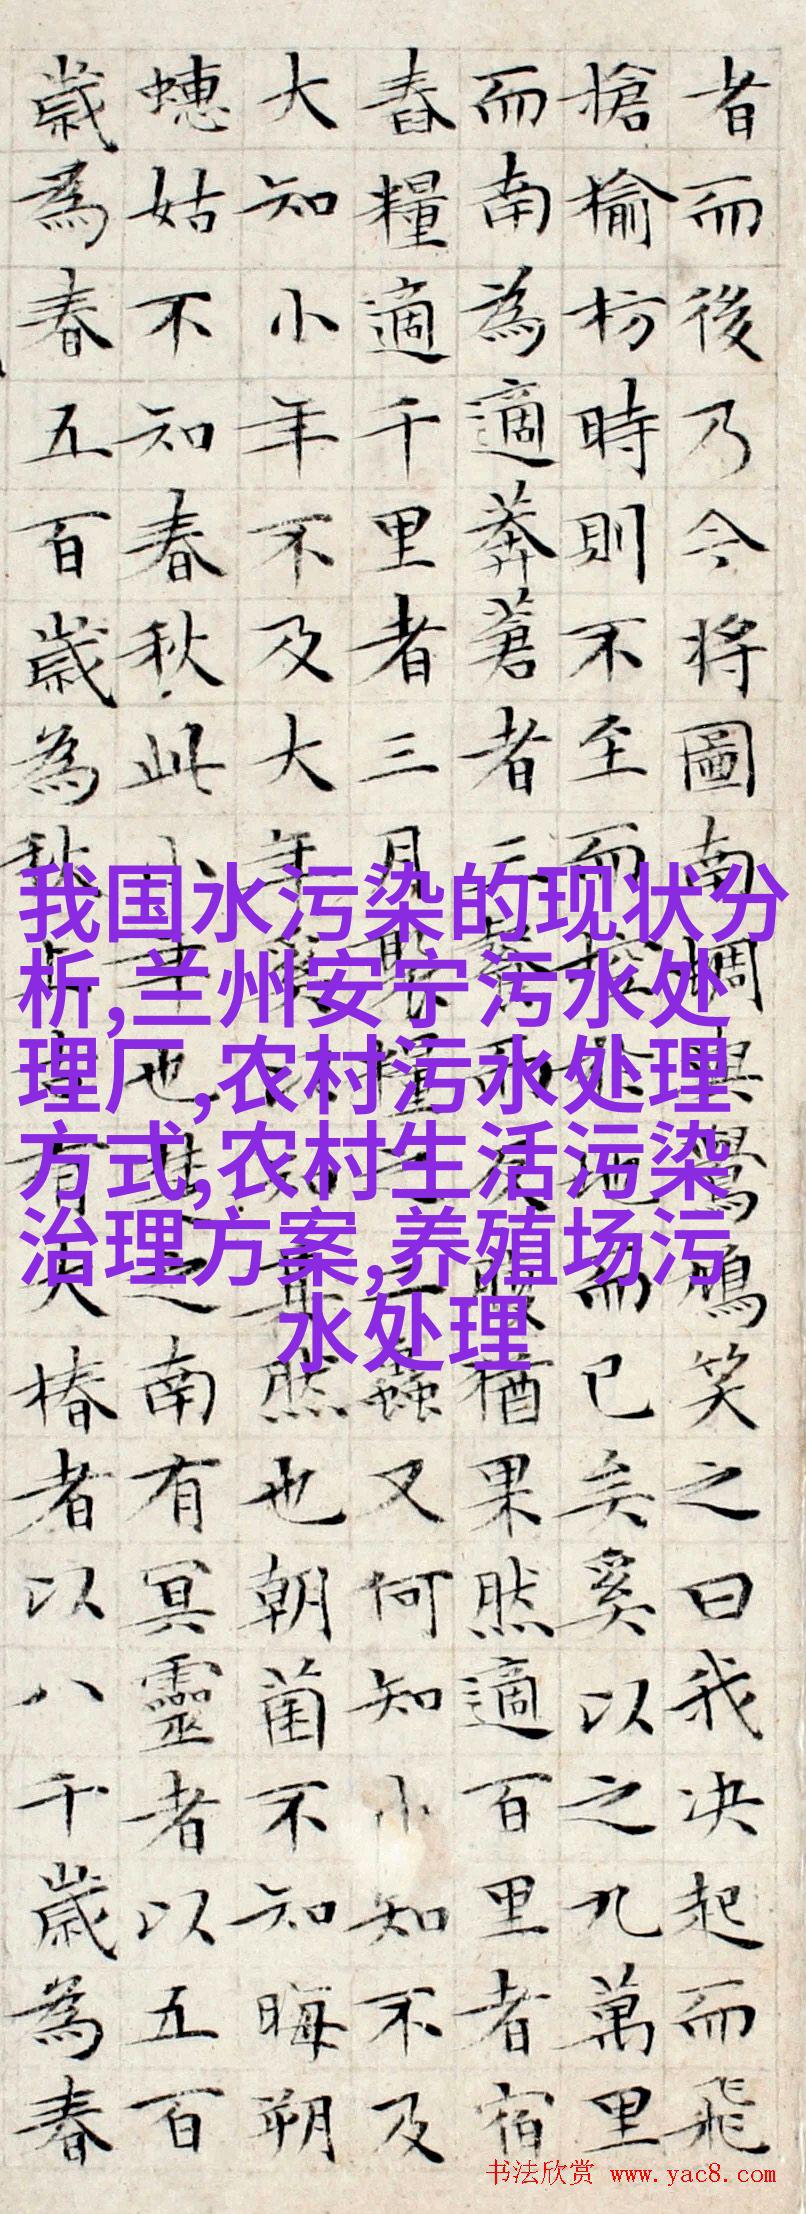 者而後乃今將圖南蜩與鷽鳩笑之曰我决起而飛
槍榆枋時則不至而控於地而已矣奚以之九萬里
而南為適莽蒼者三飡而反腹猶果然適百里者宿
舂糧適千里者三月聚糧之二蟲又何知小知不及
大知小年不及大年奚以知其然也朝菌不知晦朔
蟪姑不知春秋此小年也楚之南有冥靈者以五百
歲為春五百歲為秋上古有大椿者以八千歲為春
我国水污染的现状分
析,兰州安宁污水处
理厂,农村污水处理
方式,农村生活污染
治理方案,养殖场污
水处理
书法欣赏 www.yac8.com